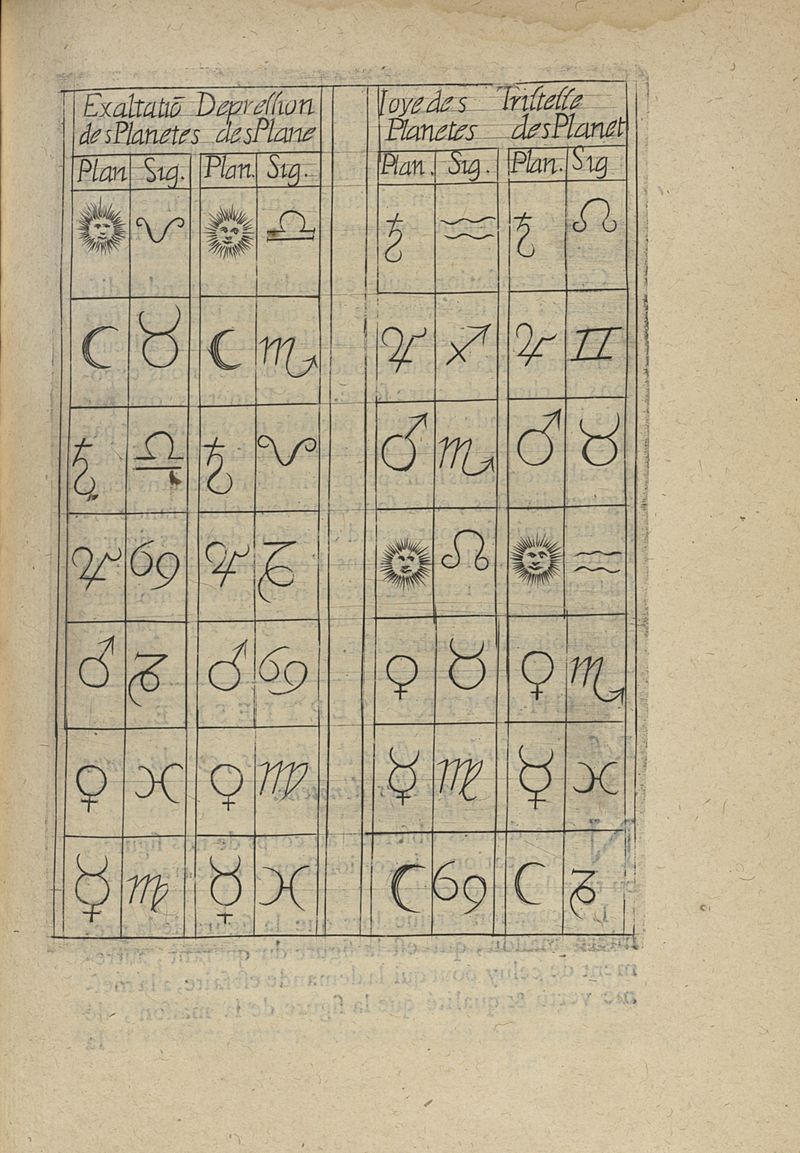 Exaltatiō Depreſſion
des Planetes des Plane
Plan Sig. Plan. Sig.
☉ ♈ ☉ ♎
☾ ♉ ☾ ♏
♄ ♎ ♄ ♈
♃ ♋ ♃ ♑
♂ ♑ ♂ ♋
♀ ♓ ♀ ♍
☿ ♍ ☿ ♓
Ioye des Triſteſſe
Planetes des Planet
Plan. Sig. Plan. Sig
♄ ♒ ♄ ♌
♃ ♐ ♃ ♊
♂ ♏ ♂ ♉
☉ ♌ ☉ ♒
♀ ♉ ♀ ♏
☿ ♍ ☿ ♓
☾ ♋ ☾ ♑